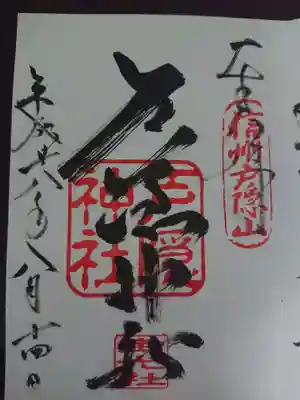 信州戸隠山
戸隠神社
戸隠神社
平成廿八年八月十四日